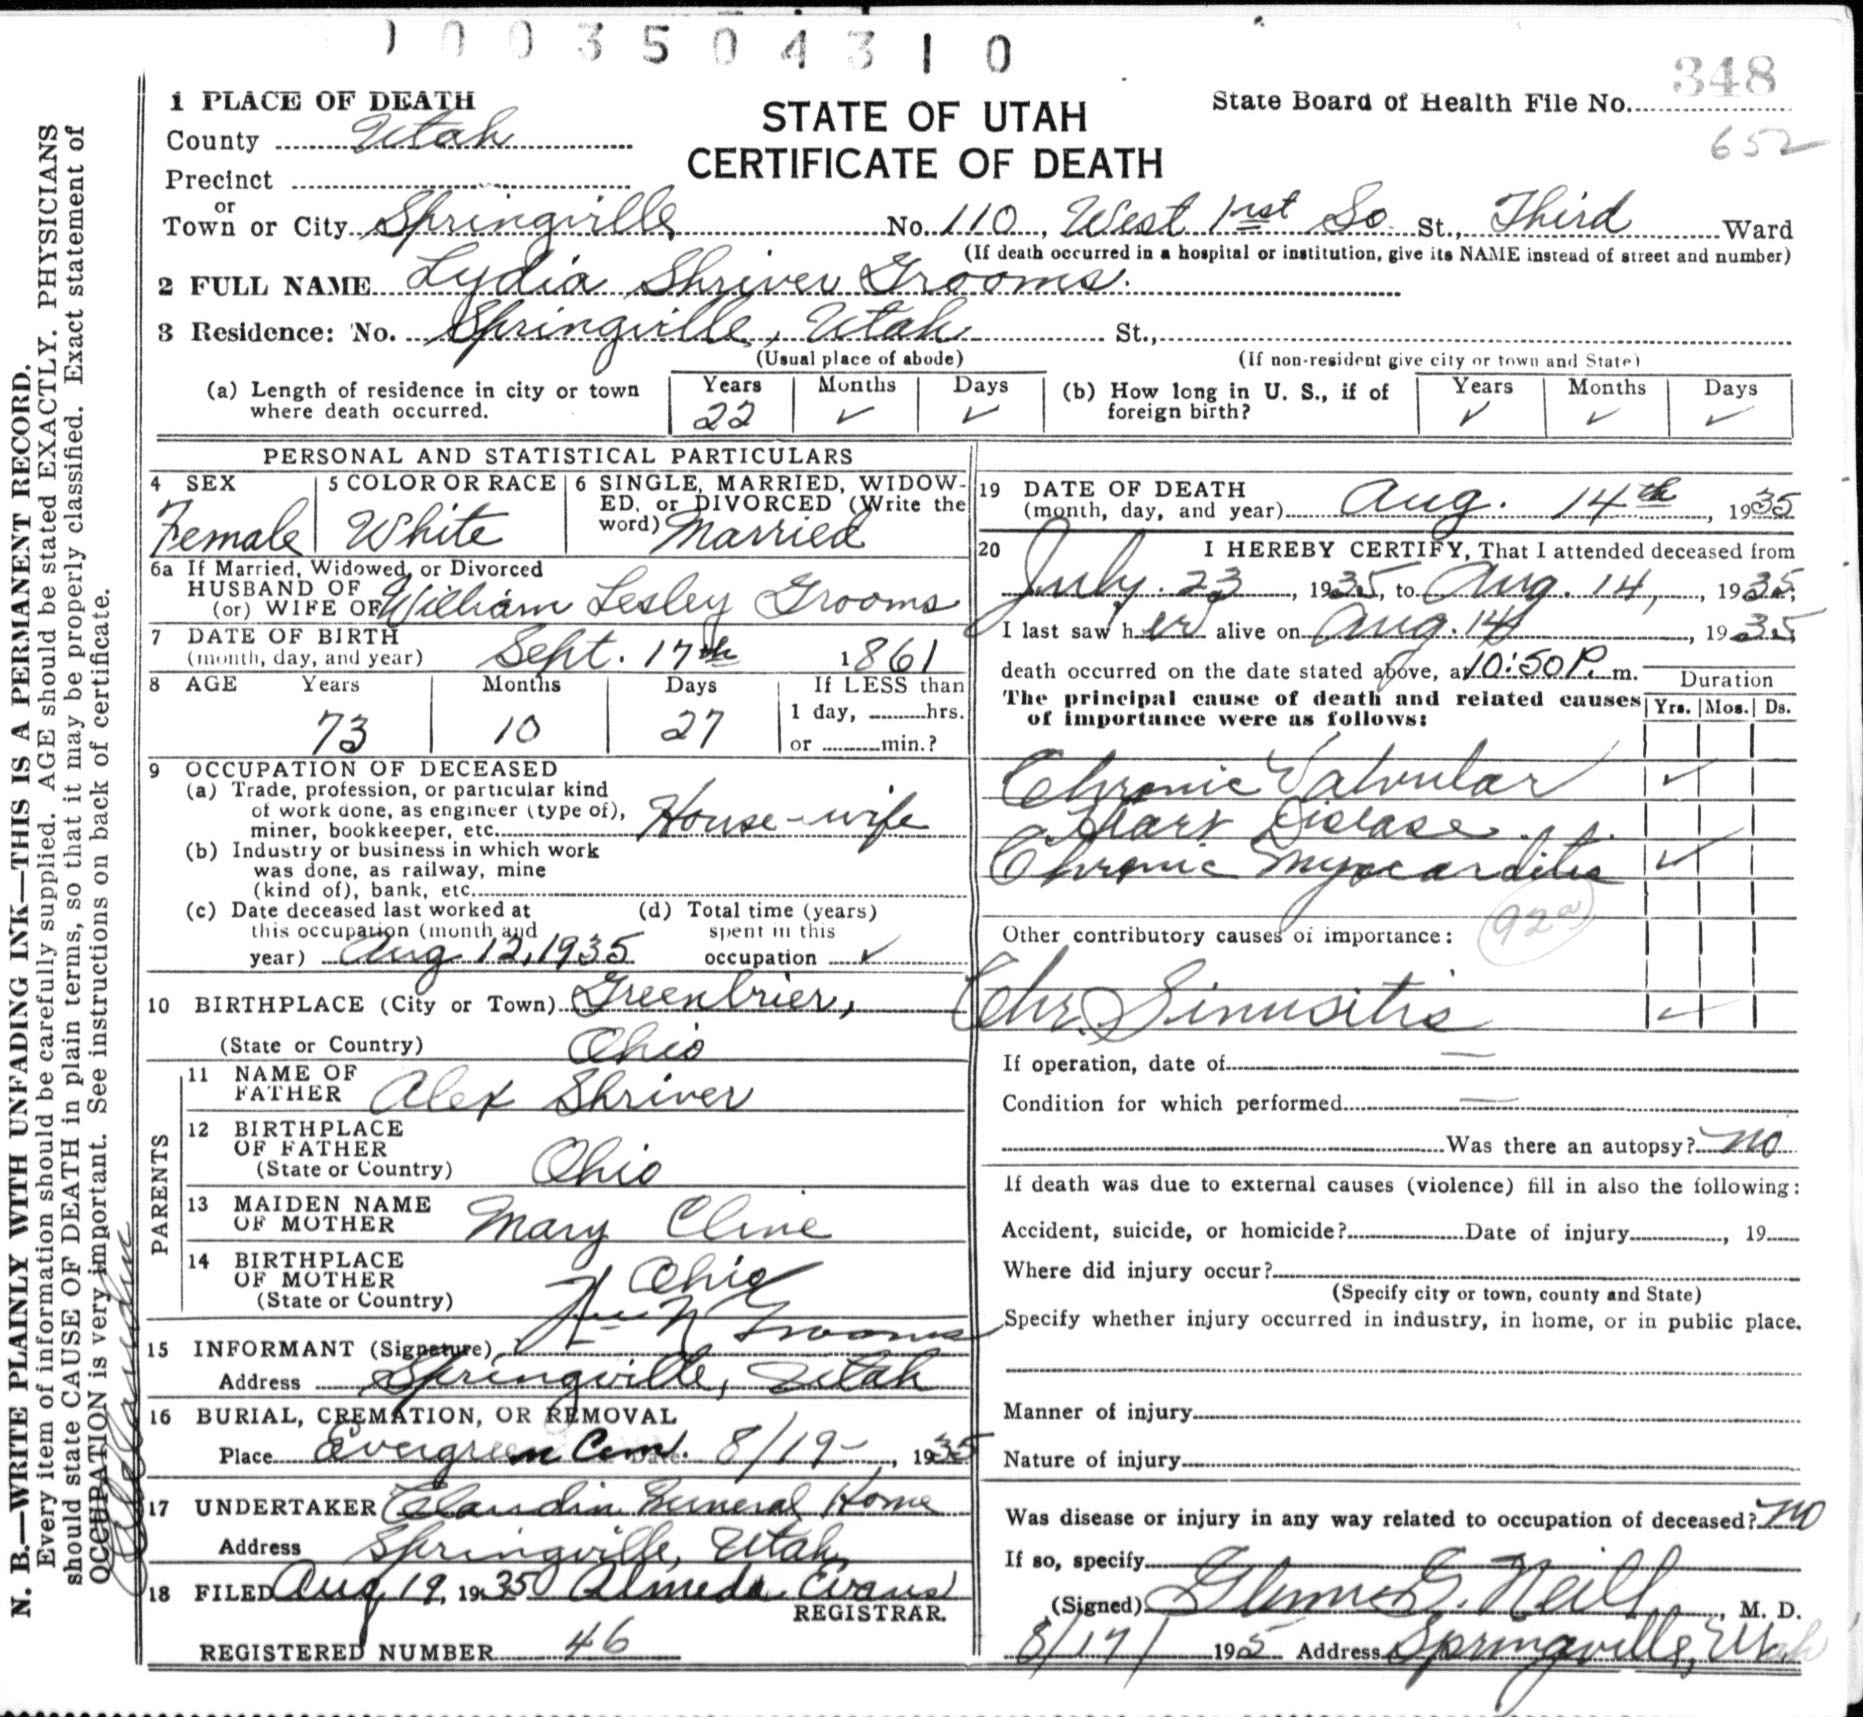 1 0 0 3 5 0 4 3 1 0
348
1 PLACE OF DEATH
STATE OF UTAH
CERTIFICATE OF DEATH
State Board of Health File No.
652
County Utah
Precinct
or
Town or City Springville No. 110, West 1rst So St., Third Ward
(If death occurred in a hospital or institution, give its NAME instead of street and number)
2 FULL NAME Lydia Shriver Grooms.
3 Residence: No. Springville, Utah St.,
(Usual place of abode) (If non-resident give city or town and State)
(a) Length of residence in city or town where death occurred. Years 22 Months ✓ Days ✓
(b) How long in U. S., if of foreign birth? Years ✓ Months ✓ Days ✓
PERSONAL AND STATISTICAL PARTICULARS
4 SEX Female
5 COLOR OR RACE White
6 SINGLE, MARRIED, WIDOW-
ED, or DIVORCED (Write the
word) Married
6a If Married, Widowed, or Divorced
HUSBAND OF
(or) WIFE OF William Lesley Grooms
7 DATE OF BIRTH
(month, day, and year) Sept. 17th 1861
8 AGE Years 73 Months 10 Days 27
If LESS than
1 day, hrs.
or min.?
9 OCCUPATION OF DECEASED
(a) Trade, profession, or particular kind
of work done, as engineer (type of),
miner, bookkeeper, etc. House-wife
(b) Industry or business in which work
was done, as railway, mine
(kind of), bank, etc.
(c) Date deceased last worked at
this occupation (month and
year) Aug 12, 1935
(d) Total time (years)
spent in this
occupation ✓
10 BIRTHPLACE (City or Town) Greenbrier,
(State or Country) Ohio
PARENTS
11 NAME OF
FATHER Alex Shriver
12 BIRTHPLACE
OF FATHER
(State or Country) Ohio
13 MAIDEN NAME
OF MOTHER Mary Cline
14 BIRTHPLACE
OF MOTHER
(State or Country) Ohio
15 INFORMANT (Signature) Grooms
Address Springville, Utah
16 BURIAL, CREMATION, OR REMOVAL
Place Evergreen Cem. Date 8/19-, 1935
17 UNDERTAKER Claudin Funeral Home
Address Springville, Utah,
18 FILED Aug 19, 1935 Almeda Evans
REGISTRAR.
REGISTERED NUMBER 46
19 DATE OF DEATH
(month, day, and year) Aug. 14th, 1935
20 I HEREBY CERTIFY, That I attended deceased from
July. 23, 1935, to Aug. 14, 1935,
I last saw her alive on Aug. 14, 1935
death occurred on the date stated above, at 10:50 P. m.
The principal cause of death and related causes
of importance were as follows:
Duration
Yrs. Mos. Ds.
Chronic Valvular ✓
Heart Disease.
Chronic Myocarditis ✓
92a
Other contributory causes of importance:
Chr. Sinusitis ✓
If operation, date of —
Condition for which performed —
Was there an autopsy? no
If death was due to external causes (violence) fill in also the following:
Accident, suicide, or homicide? Date of injury, 19
Where did injury occur?
(Specify city or town, county and State)
Specify whether injury occurred in industry, in home, or in public place.
Manner of injury
Nature of injury
Was disease or injury in any way related to occupation of deceased? no
If so, specify
(Signed) G. Neill, M. D.
8/17/ 1935 Address Springville, Utah
N. B.—WRITE PLAINLY WITH UNFADING INK—THIS IS A PERMANENT RECORD.
Every item of information should be carefully supplied. AGE should be stated EXACTLY. PHYSICIANS
should state CAUSE OF DEATH in plain terms, so that it may be properly classified. Exact statement of
OCCUPATION is very important. See instructions on back of certificate.